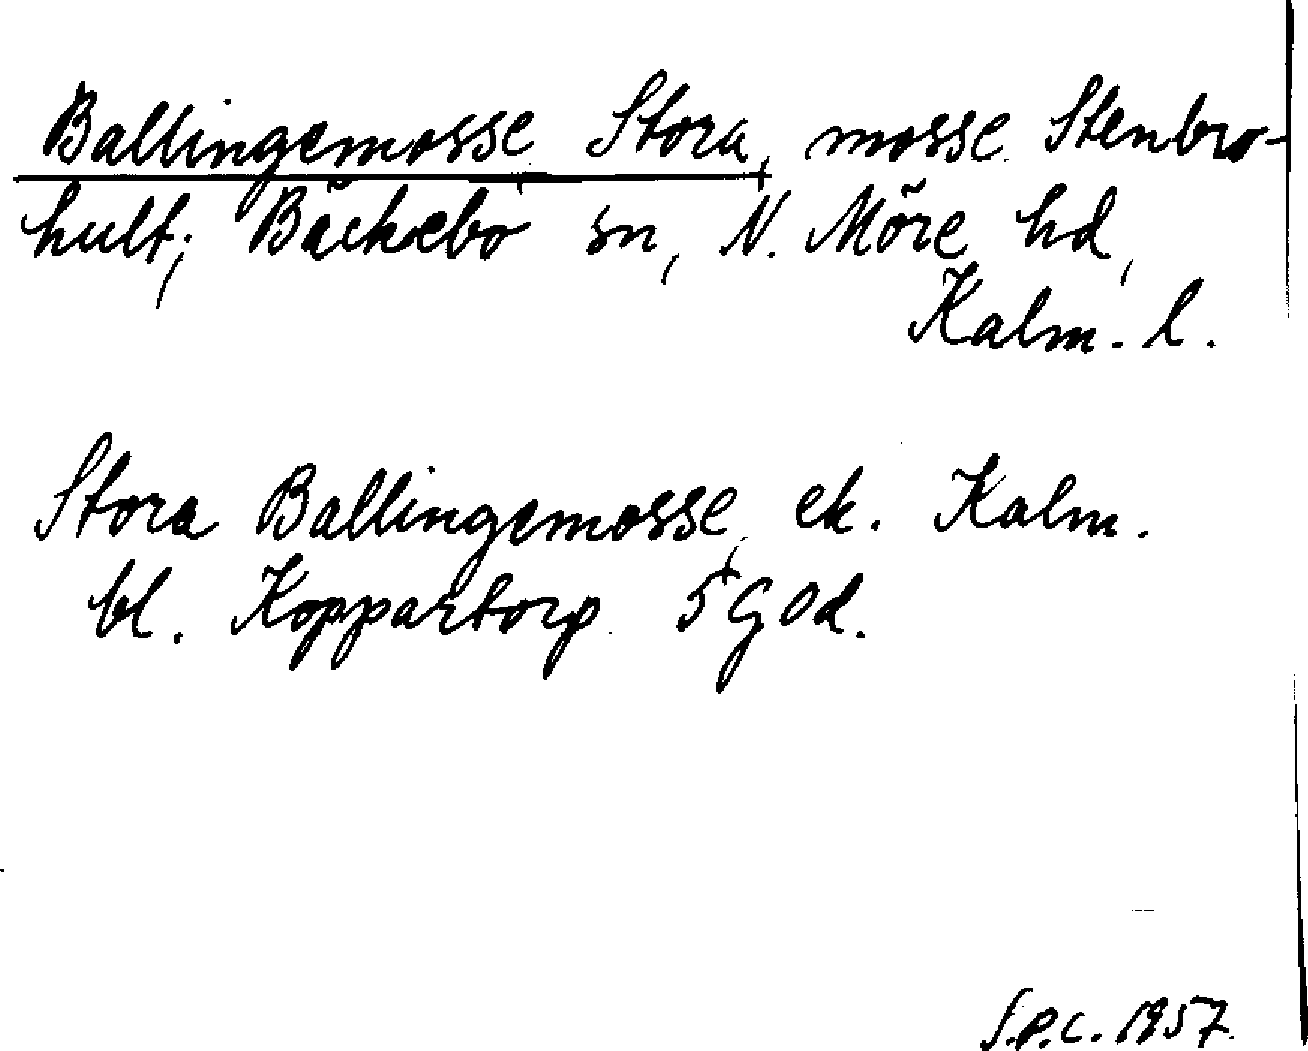 Ballingemosse, Stora, mosse Stenbro-
hult, Bäckebo sn, N. Möre hd,
Kalm. l.
Stora Ballingemosse, ek. Kalm.
bl. Koppartorp 5 G d.
S.P.C. 1957.